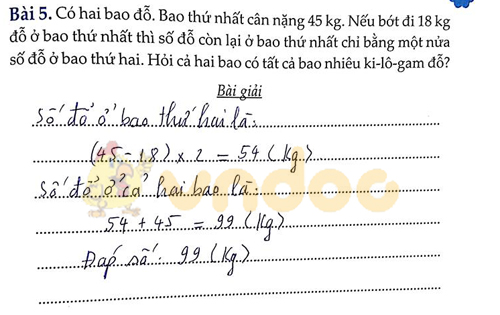 Bài 5. Có hai bao đỗ. Bao thứ nhất cân nặng 45 kg. Nếu bớt đi 18 kg
đỗ ở bao thứ nhất thì số đỗ còn lại ở bao thứ nhất chỉ bằng một nửa
số đỗ ở bao thứ hai. Hỏi cả hai bao có tất cả bao nhiêu ki-lô-gam đỗ?
Bài giải
Số đỗ ở bao thứ hai là:
(45 - 18) x 2 = 54 (kg)
Số đỗ ở cả hai bao là:
54 + 45 = 99 (kg)
Đáp số: 99 (kg)
vndoc